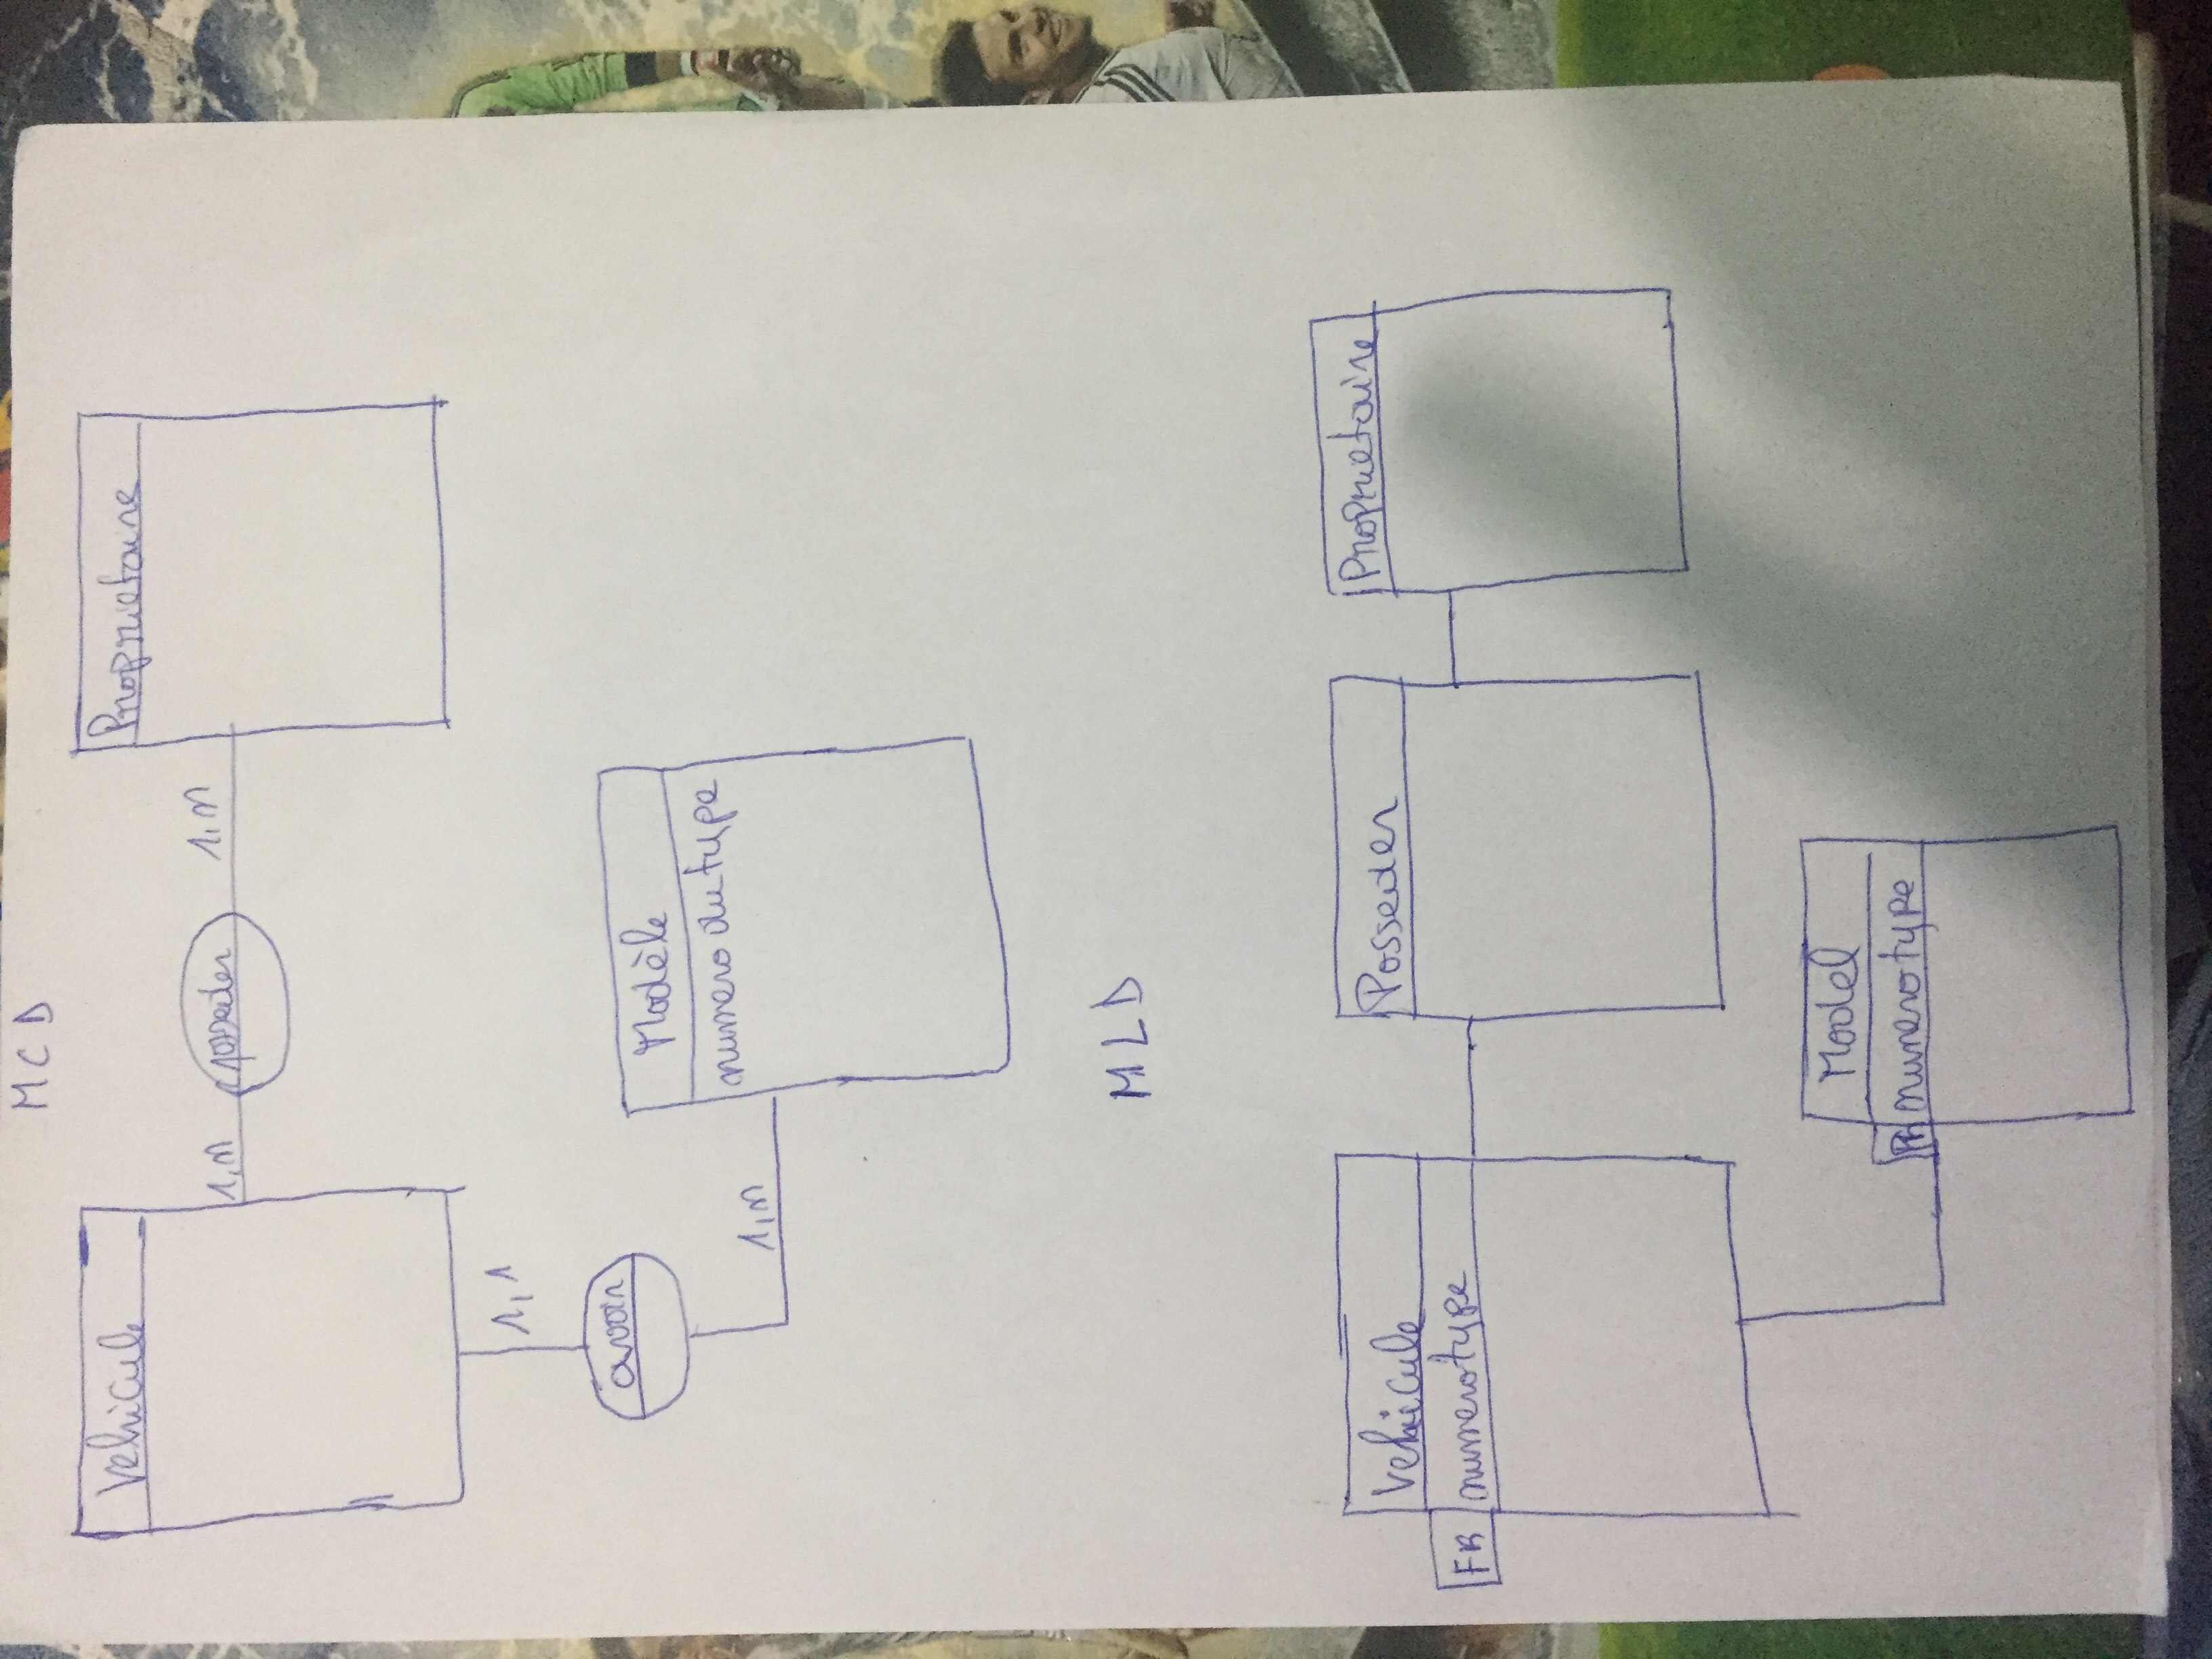 MCD
Vehicule
Proprietaire
1,n
posseder
1,n
1,1
avoir
Modèle
numero du type
1,n
MLD
Vehicule
Posseder
Proprietaire
FK
numerotype
Model
PK
numerotype